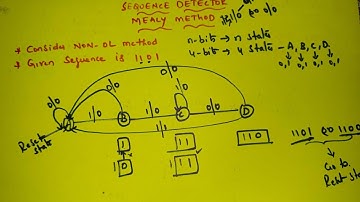 SEQUENCE DETECTOR
MEALY METHOD
* Consider NON-OL method
* Given Sequence is 1101
n-bit → n state
4-bit → 4 state - A, B, C, D
0,1 0,1 0,1 0,1
0/0
1/0
0/0
1/0
1/0
0/0
1/1
B
C
D
Reset
state
1
10
11
11
110
1101 1100
Go to
Reset state